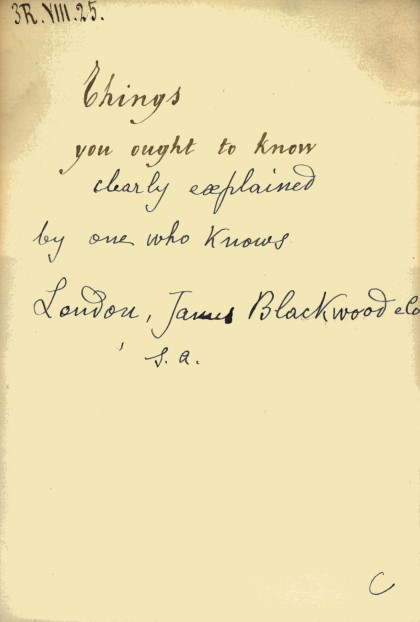 3R.VIII.25.
Things
you ought to know
clearly explained
by one who knows
London, James Blackwood &Co
s.a.
C